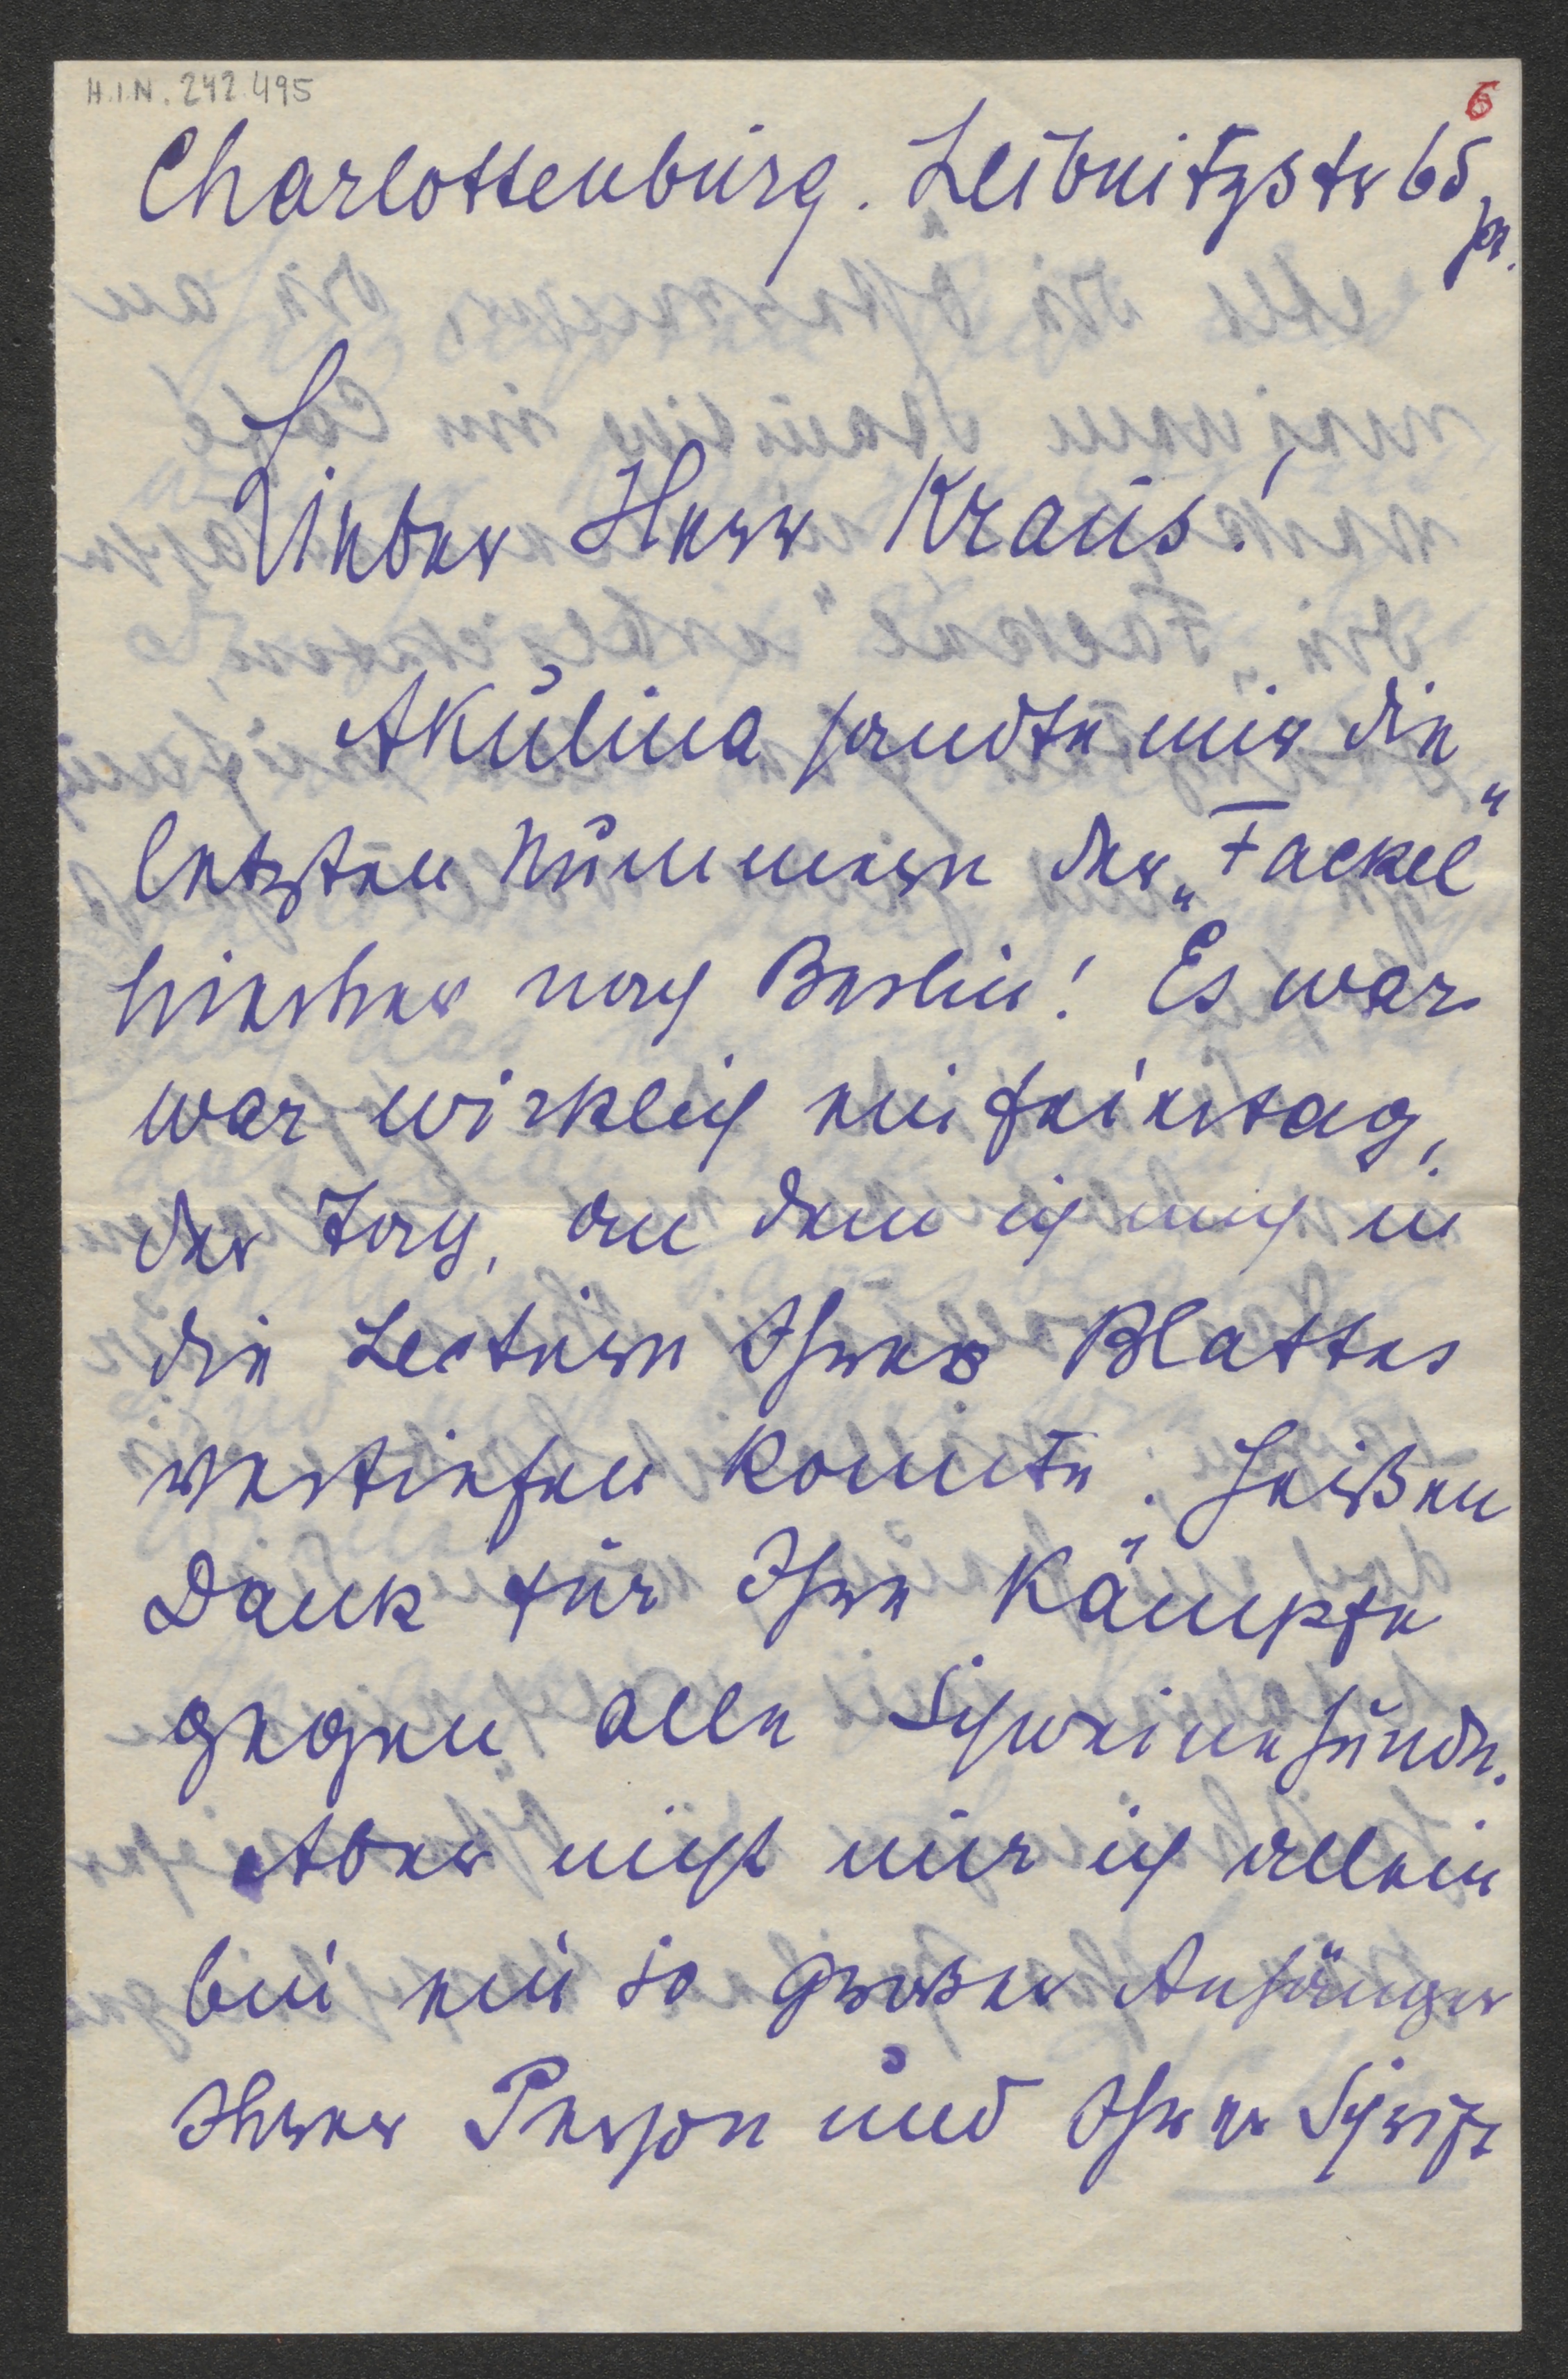 H.I.N. 242.495
6
Charlottenburg. Leibnitzstr 65 pr.
Lieber Herr Kraus!
Akulina sandte mir die
letzten Nummern der „Fackel“
hierher nach Berlin! Es war
war wirklich ein Feiertag,
der Tag, an dem ich mich in
die Lectüre Ihres Blattes
vertiefen konnte. Heißen
Dank für Ihre Kämpfe
gegen alle Schweinehunde.
Aber nicht nur ich allein
bin ein so großer Anhänger
Ihrer Person und Ihrer Schrift